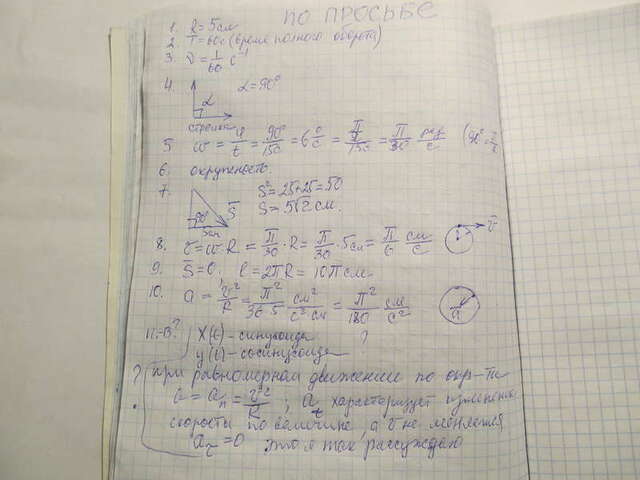 ПО ПРОСЬБЕ
1. R = 5 см
2. T = 60 с (время полного оборота)
3. ν = 1/60 с⁻¹
4. α α = 90°
стрелка
5 ω = φ/t = 90°/15с = 6 °/с = π/2/15с = π/30 рад/с (90° = π/2
6. окружность.
7. 90° 5см S̄ S² = 25 + 25 = 50
S = 5√2 см.
8. v = ω R = π/30 · R = π/30 · 5 см = π/6 см/с v̄
9. S̄ = 0. l = 2πR = 10π см
10. a = v²/R = π²/36·5 см²/с² см = π²/180 см/с² a
11.-13? X(t) - синусоида ?
y(t) - косинусоида
? при равномерном движении по окр-ти
a = aₙ = v²/R ; aτ характеризует изменение
скорости по величине, а v не меняется,
aτ = 0 это я так рассуждаю